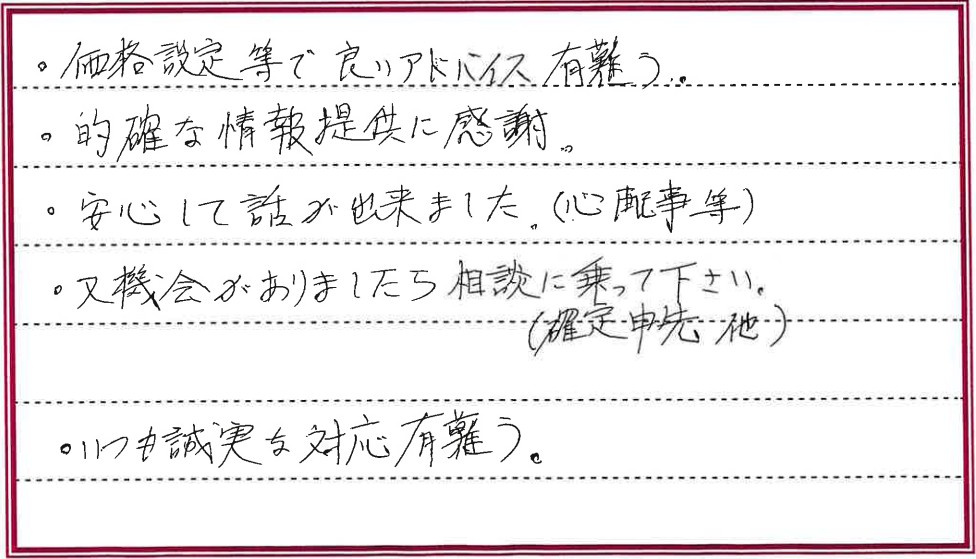 ・価格設定等で良いアドバイス有難う。
・的確な情報提供に感謝。
・安心して話が出来ました。(心配事等)
・又機会がありましたら相談に乗って下さい。
(確定申先 他)
・いつも誠実な対応有難う。